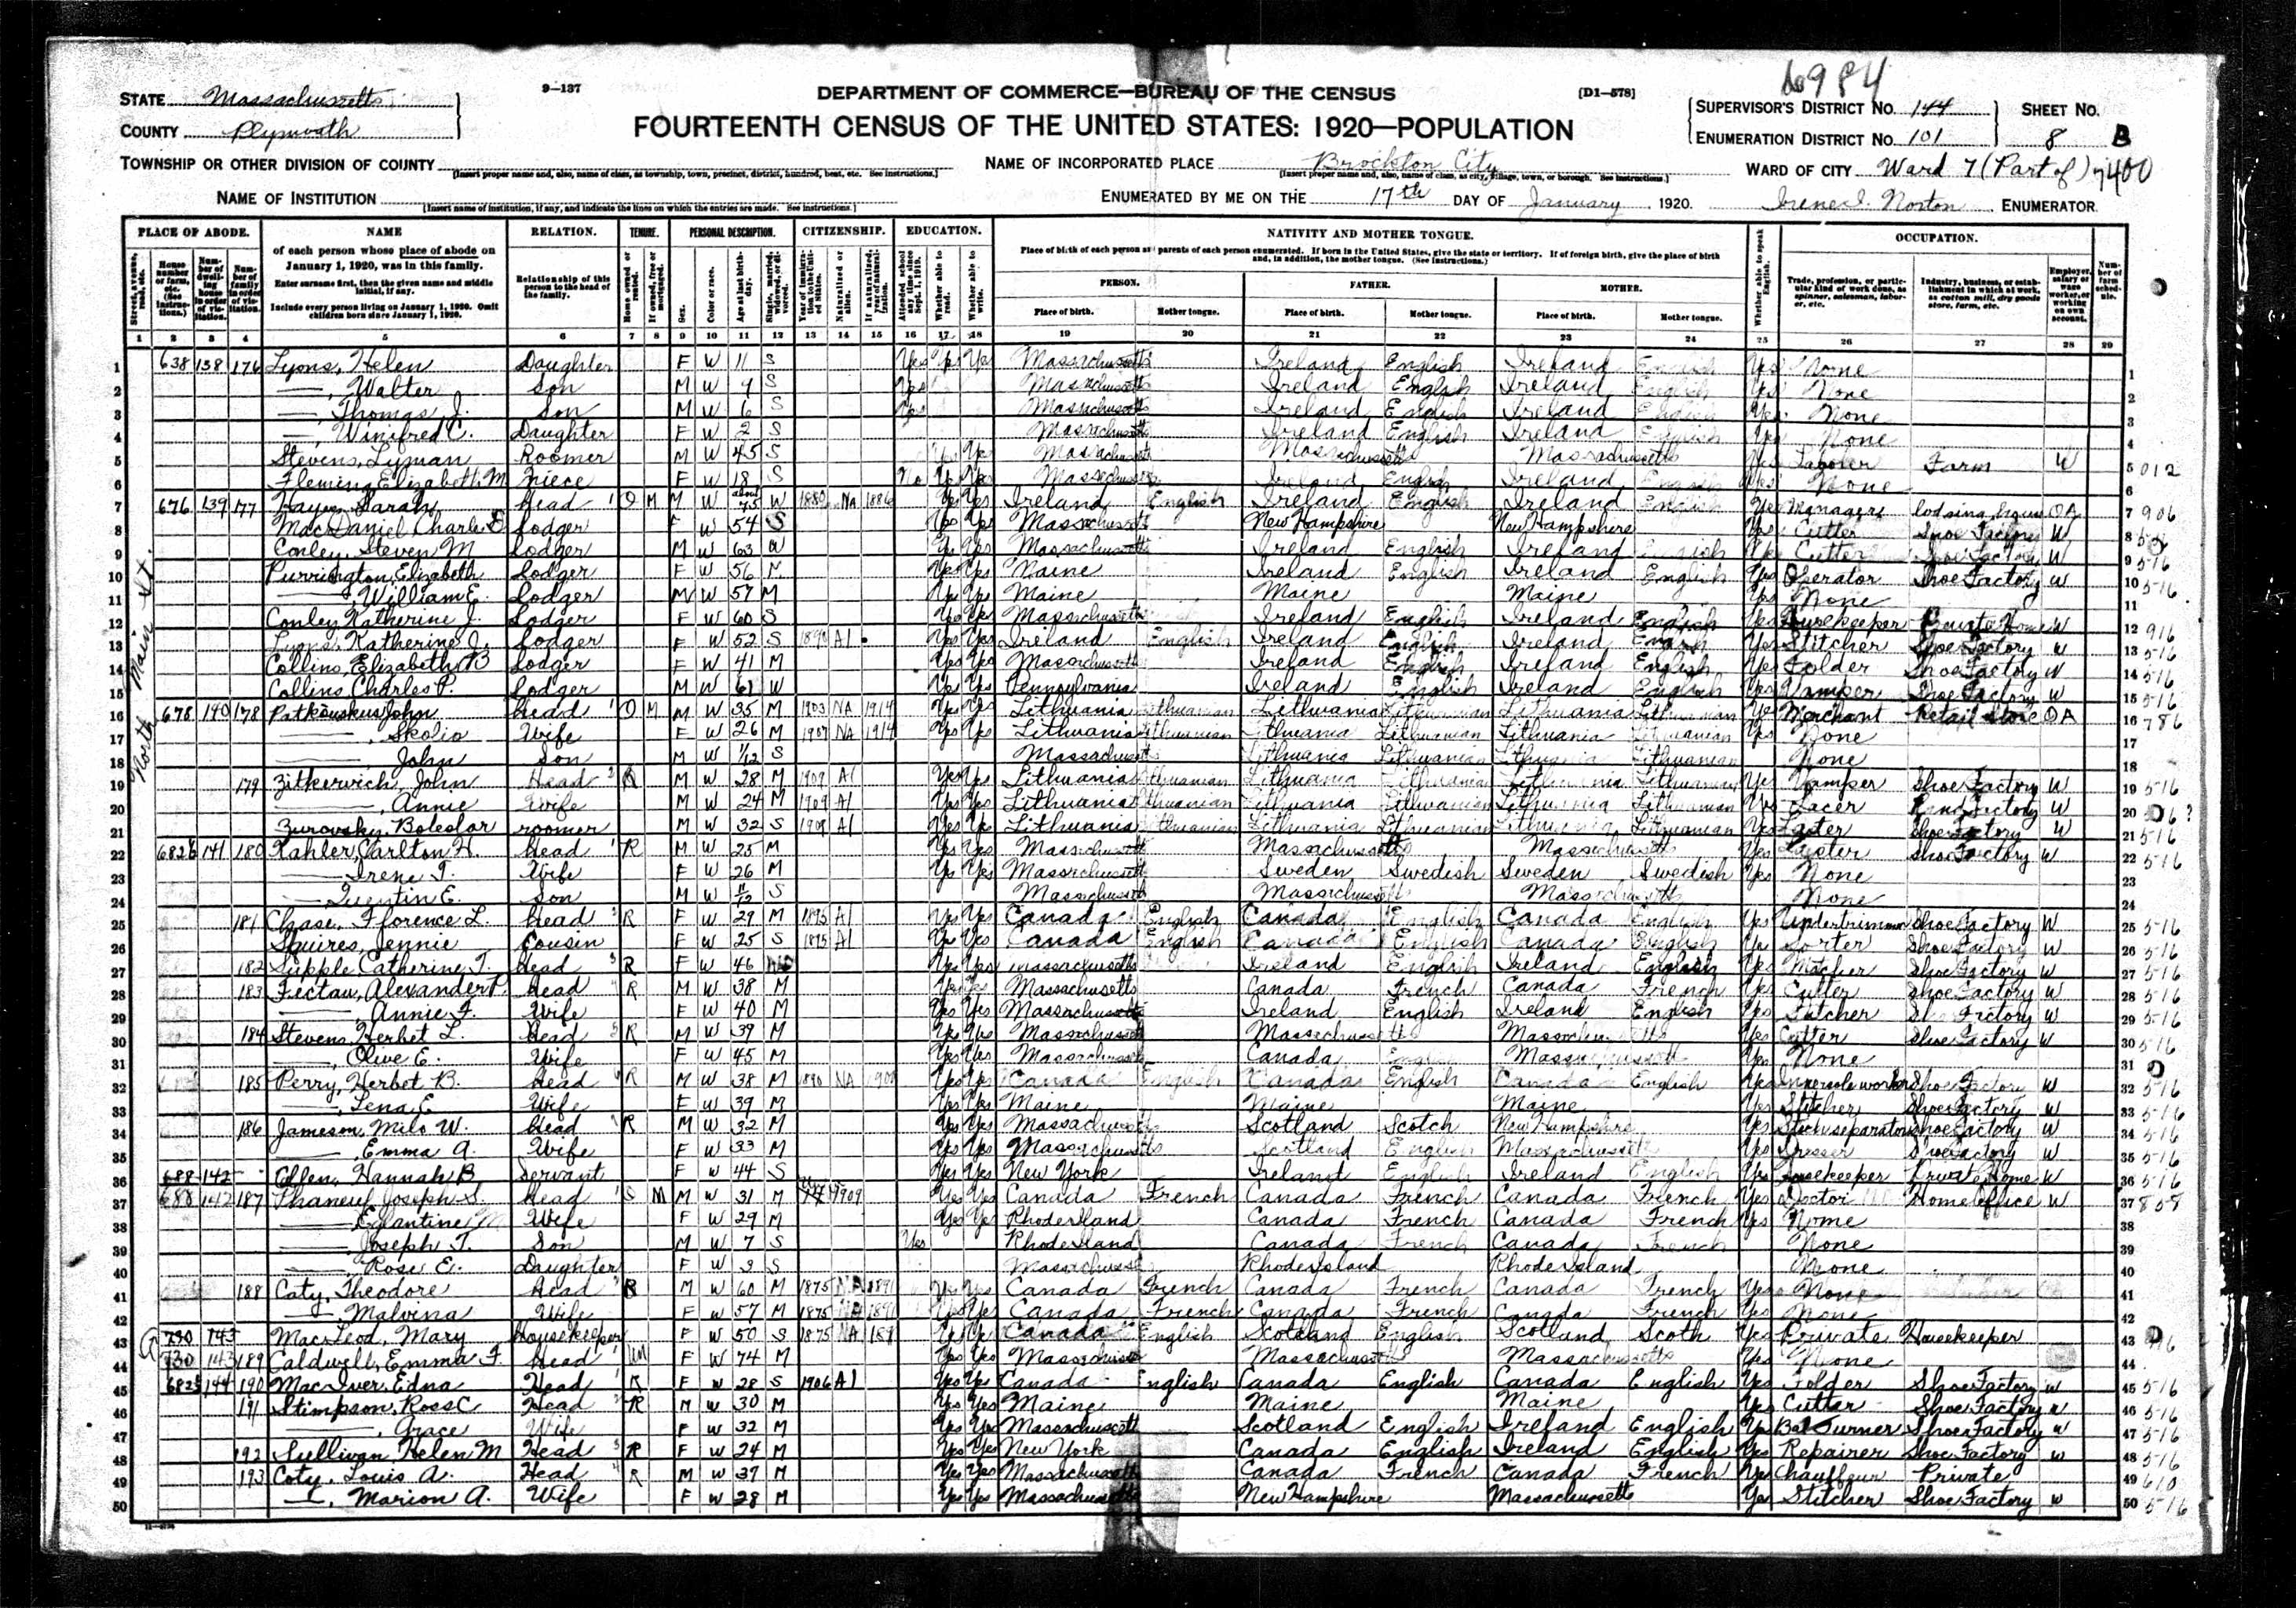 6984
STATE Massachusetts
9—137
DEPARTMENT OF COMMERCE—BUREAU OF THE CENSUS
[D1—578]
SUPERVISOR'S DISTRICT NO. 144
SHEET NO.
COUNTY Plymouth
FOURTEENTH CENSUS OF THE UNITED STATES: 1920—POPULATION
ENUMERATION DISTRICT NO. 101
8 B
TOWNSHIP OR OTHER DIVISION OF COUNTY
[Insert proper name and, also, name of class, as township, town, precinct, district, hundred, beat, etc. See instructions.]
NAME OF INCORPORATED PLACE Brockton City
[Insert proper name and, also, name of class, as city, village, town, or borough. See instructions.]
WARD OF CITY Ward 7 (Part of) 7400
NAME OF INSTITUTION
[Insert name of institution, if any, and indicate the lines on which the entries are made. See instructions.]
ENUMERATED BY ME ON THE 17th DAY OF January, 1920. Irene I. Norton ENUMERATOR
PLACE OF ABODE. NAME RELATION. TENURE. PERSONAL DESCRIPTION. CITIZENSHIP. EDUCATION. NATIVITY AND MOTHER TONGUE. OCCUPATION.
of each person whose place of abode on January 1, 1920, was in this family.
Enter surname first, then the given name and middle initial, if any.
Include every person living on January 1, 1920. Omit children born since January 1, 1920.
Relationship of this person to the head of the family.
Place of birth of each person and parents of each person enumerated. If born in the United States, give the state or territory. If of foreign birth, give the place of birth and, in addition, the mother tongue. (See instructions.)
PERSON. FATHER. MOTHER.
Place of birth. Mother tongue. Place of birth. Mother tongue. Place of birth. Mother tongue.
Trade, profession, or particular kind of work done, as spinner, salesman, laborer, etc.
Industry, business, or establishment in which at work, as cotton mill, dry goods store, farm, etc.
Employer, salary or wage worker, or working on own account.
Number of farm schedule.
1 2 3 4 5 6 7 8 9 10 11 12 13 14 15 16 17 18 19 20 21 22 23 24 25 26 27 28 29
North Main St.
1 638 138 176 Lyons, Helen Daughter F W 11 S Yes Yes Yes Massachusetts Ireland English Ireland English Yes None 1
2 —, Walter Son M W 7 S Yes Massachusetts Ireland English Ireland English Yes None 2
3 — Thomas J. Son M W 6 S Yes Massachusetts Ireland English Ireland English Yes None 3
4 —, Winifred C. Daughter F W 2 S Massachusetts Ireland English Ireland English Yes None 4
5 Stevens, Lyman Roomer M W 45 S Yes Yes Massachusetts Massachusetts Massachusetts Yes Laborer Farm W 5 012
6 Fleming Elizabeth M Niece F W 18 S No Yes Yes Massachusetts Ireland English Ireland English Yes None 6
7 676 139 177 Hayes Sarah head 1 O M M W about 45 W 1880 NA 1886 Yes Yes Ireland English Ireland English Ireland English Yes Manager lodging house OA 7 906
8 MacDaniel Charles E Lodger F W 54 S Yes Yes Massachusetts New Hampshire New Hampshire Yes Cutter Shoe Factory W 8
9 Conley, Steven M Lodger M W 63 W Yes Yes Massachusetts Ireland English Ireland English Yes Cutter Shoe Factory W 9 516
10 Purrington, Elizabeth Lodger F W 56 M Yes Yes Maine Ireland English Ireland English Yes Operator Shoe Factory W 10 516
11 — William E. Lodger M W 57 M Yes Yes Maine Maine Maine Yes None 11
12 Conley Katherine J. Lodger F W 60 S Yes Yes Massachusetts Ireland English Ireland English Yes Housekeeper Private Home W 12 916
13 Lyons, Katherine J. Lodger F W 52 S 1890 Al Yes Yes Ireland English Ireland English Ireland English Yes Stitcher Shoe Factory W 13 516
14 Collins, Elizabeth B Lodger F W 41 M Yes Yes Massachusetts Ireland English Ireland English Yes Folder Shoe Factory W 14 516
15 Collins Charles P. Lodger M W 61 W Yes Yes Pennsylvania Ireland English Ireland English Yes Vamper Shoe Factory W 15 516
16 678 140 178 Patkouskus John head 1 O M M W 35 M 1903 NA 1914 Yes Yes Lithuania Lithuanian Lithuania Lithuanian Lithuania Lithuanian Yes Merchant Retail store OA 16 786
17 —, Skolia Wife F W 26 M 1907 NA 1914 Yes Yes Lithuania Lithuanian Lithuania Lithuanian Lithuania Lithuanian Yes None 17
18 — John Son M W 1/12 S Massachusetts Lithuania Lithuanian Lithuania Lithuanian None 18
19 179 Zitkervich, John Head 2 R M W 28 M 1909 Al Yes Yes Lithuania Lithuanian Lithuania Lithuanian Lithuania Lithuanian Yes Vamper Shoe Factory W 19 516
20 —, Annie Wife M W 24 M 1909 Al Yes Yes Lithuania Lithuanian Lithuania Lithuanian Lithuania Lithuanian Yes Lacer Rand Factory W 20
21 Zurovsky, Boleslar roomer M W 32 S 1909 Al Yes Yes Lithuania Lithuanian Lithuania Lithuanian Lithuania Lithuanian Yes Laster Shoe Factory W 21 516
22 682 141 180 Kahler, Carlton H. head 1 R M W 25 M Yes Yes Massachusetts Massachusetts Massachusetts Yes Laster Shoe Factory W 22 516
23 — Irene T. Wife F W 26 M Yes Yes Massachusetts Sweden Swedish Sweden Swedish Yes None 23
24 — Quentin E. Son M W 11/12 S Massachusetts Massachusetts Massachusetts None 24
25 181 Chase, Florence L. head R F W 29 M 1895 Al Yes Yes Canada English Canada English Canada English Yes Undertrimmer Shoe Factory W 25 516
26 Squires, Jennie Cousin F W 25 S 1895 Al Yes Yes Canada English Canada English Canada English Yes Sorter Shoe Factory W 26 516
27 182 Supple Catherine T. head 3 R F W 46 Yes Yes Massachusetts Ireland English Ireland English Yes Shoe Factory W 27 516
28 183 Fectau, Alexander P. head R M W 38 M Yes Yes Massachusetts Canada French Canada French Yes Cutter Shoe Factory W 28 516
29 —, Annie F. Wife F W 40 M Yes Yes Massachusetts Ireland English Ireland English Yes Stitcher Shoe Factory W 29 516
30 184 Stevens, Herbet L. head 5 R M W 39 M Yes Yes Massachusetts Massachusetts Massachusetts Yes Cutter Shoe Factory W 30 516
31 —, Olive E. Wife F W 45 M Yes Yes Massachusetts Canada English Massachusetts Yes None 31
32 185 Perry, Herbet B. head R M W 38 M 1890 NA Yes Yes Canada English Canada English Canada English Yes Innersole worker Shoe Factory W 32 516
33 —, Lena E. Wife F W 39 M Yes Yes Maine Maine Maine Yes Stitcher Shoe Factory W 33 516
34 186 Jameson, Milo W. head R M W 32 M Yes Yes Massachusetts Scotland Scotch New Hampshire Yes Shoe Factory W 34 516
35 —, Emma A. Wife F W 33 M Yes Yes Massachusetts Scotland English Massachusetts Yes Dresser Shoe Factory W 35 516
36 688 142 Ellen, Hannah B servant F W 44 S Yes Yes New York Ireland English Ireland English Yes Housekeeper Private Home W 36 516
37 688 142 187 Phaneuf Joseph S. head 1 M M W 31 M 1909 Yes Yes Canada French Canada French Canada French Yes Doctor Home Office W 37 858
38 — Eglantine M Wife F W 29 M Yes Yes Rhode Island Canada French Canada French Yes None 38
39 — Joseph T. Son M W 7 S Yes Rhode Island Canada French Canada French None 39
40 — Rose E. Daughter F W 3 S Massachusetts Rhode Island Rhode Island None 40
41 188 Caty, Theodore Head 2 R M W 60 M 1875 NA 1891 Yes Yes Canada French Canada French Canada French Yes None 41
42 — Malvina Wife F W 57 M 1875 NA 1891 Yes Yes Canada French Canada French Canada French Yes None 42
43 730 143 MacLeod, Mary Housekeeper F W 50 S 1875 NA Yes Yes Canada English Scotland English Scotland Scoth Yes Private Housekeeper 43
44 730 143 189 Caldwell, Emma F. Head 1 Un F W 74 M Yes Yes Massachusetts Massachusetts Massachusetts Yes None 44
45 682 144 190 MacIver, Edna Head 1 R F W 28 S 1906 Al Yes Yes Canada English Canada English Canada English Yes Folder Shoe Factory W 45 516
46 191 Stimpson, Ross C Head R M W 30 M Yes Yes Maine Maine Maine Yes Cutter Shoe Factory W 46 516
47 —, Grace Wife F W 32 M Yes Yes Massachusetts Scotland English Ireland English Yes Shoe Factory W 47 516
48 192 Sullivan Helen M Head 3 R F W 24 M Yes Yes New York Canada English Ireland English Yes Repairer Shoe Factory W 48 516
49 193 Coty, Louis A. Head R M W 37 M Yes Yes Massachusetts Canada French Canada French Yes Chauffeur Private 49 610
50 —, Marion A. Wife F W 28 M Yes Yes Massachusetts New Hampshire Massachusetts Yes Stitcher Shoe Factory W 50 516